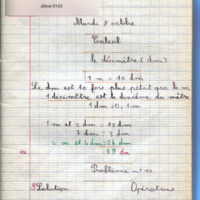 élève 0103
Mardi 8 octobre
Calcul
le décimètre (dm)
1 m = 10 dm
Le dm est 10 fois plus petit que le m
1 décimètre est le dixième du mètre
1 dm = 0,1 m
1 m et 2 dm = 12 dm
3 dm = 3 dm
2 m et 4 dm = 24 dm
39 dm
Problème n° 12
Solution Opérations